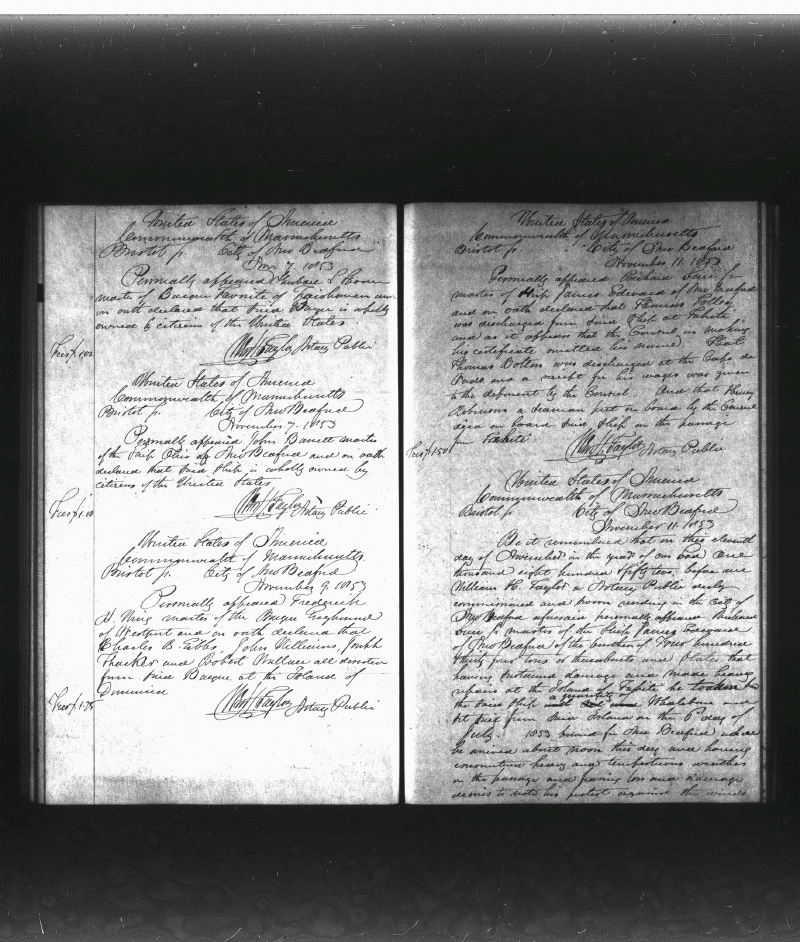 United States of America
Commonwealth of Massachusetts
Bristol ss. City of New Bedford
Nov 7. 1853
Personally appeared L Brown
master of Barque Favorite of Fairhaven and
on oath declared that said Barque is wholly
owned by citizens of the United States.
Fees $1.00
Wm H Taylor Notary Public
United States of America
Commonwealth of Massachusetts
Bristol ss. City of New Bedford
November 7. 1853
Personally appeared John Barrett master
of the Ship Ohio of New Bedford and on oath
declared that said Ship is wholly owned by
citizens of the United States
Fees $1.00
Wm H Taylor Notary Public
United States of America
Commonwealth of Massachusetts
Bristol ss. City of New Bedford
November 9. 1853
Personally appeared Frederick
H. master of the Barque Greyhound
of Westport and on oath declared that
Charles B. Tibbs, John Williams, Joseph
Thacker and Robert Wallace all deserted
from said Barque at the Island of
Dominica
Fees $1.75
Wm H Taylor Notary Public
United States of America
Commonwealth of Massachusetts
Bristol ss. City of New Bedford
November 11. 1853
Personally appeared Richard Jr
master of Ship James Edward of New Bedford
and on oath declared that Thomas Bolton
was discharged from said Ship at Tahite
and as it appears that the Consul in making
his certificate omitted his name. That
Thomas Bolton was discharged at the Cape de
Verds and a receipt for his wages was given
to the deponent by the Consul And that Henry
Robinson a seaman put on board by the Consul
died on board said Ship on the passage
from Tahite
Fees $1.50
Wm H Taylor Notary Public
United States of America
Commonwealth of Massachusetts
Bristol ss. City of New Bedford
November 11. 1853
Be it remembered that on this eleventh
day of November in the year of our Lord One
thousand eight hundred fifty two, before me
William H. Taylor a Notary Public duly
commissioned and sworn residing in the City of
New Bedford aforesaid personally appeared Richard
Jr master of the Ship James Edward
of New Bedford of the burthen of Four hundred
thirty four tons or thereabouts and states that
having sustained damage and made heavy
repairs at the Island of Tahite he
the said Ship a quantity of Whalebone and
set sail from said Island on the 6 day of
July. 1853 bound for New Bedford where
he arrived about noon this day and having
encountered heavy and tempestuous weather
on the passage and fearing loss and damage
desires to note his protest against the winds